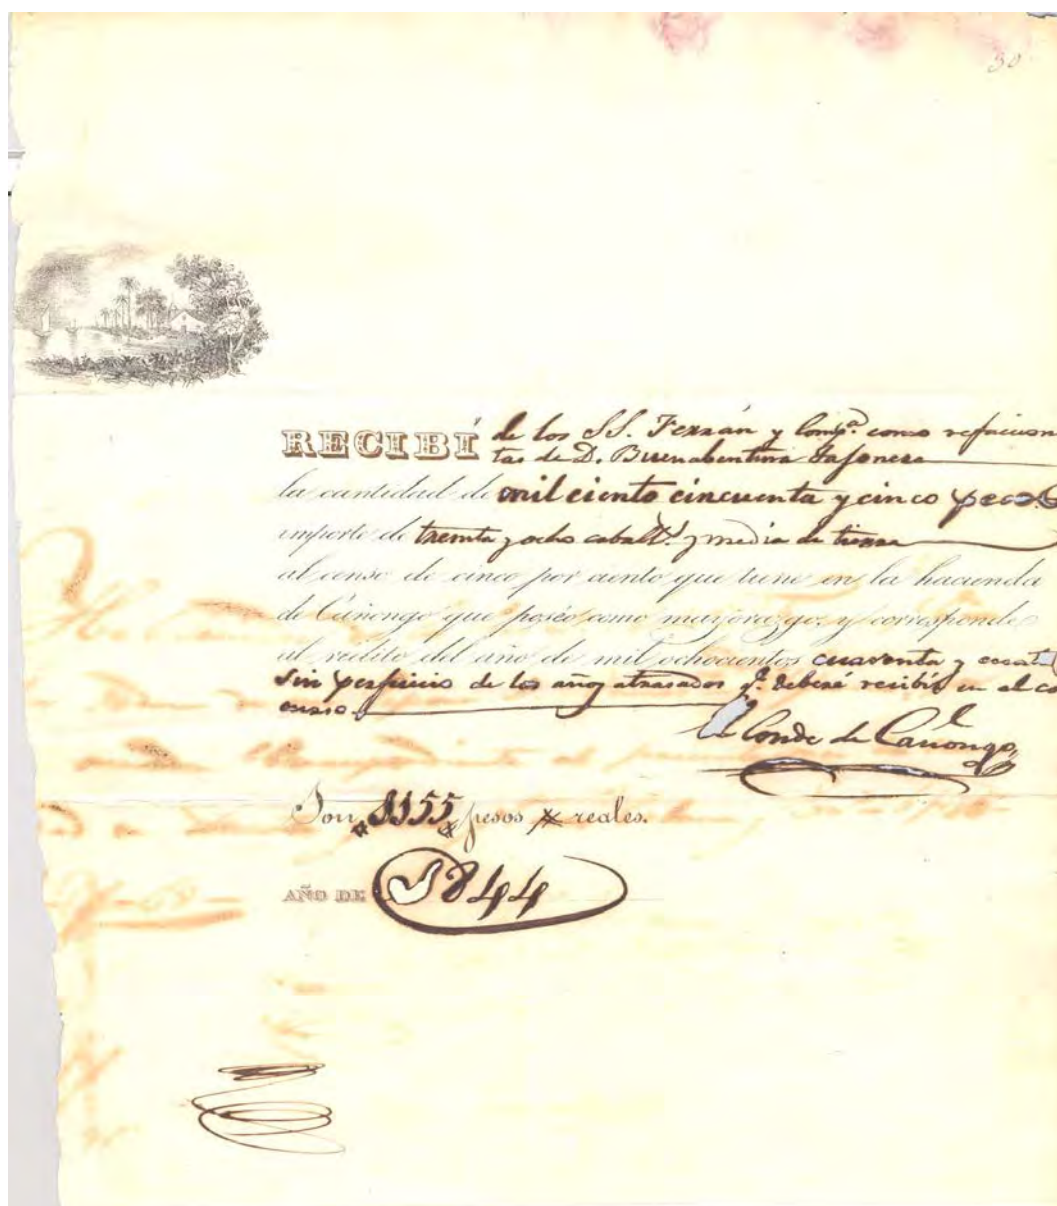 30
RECIBÍ de los SS. Ferrán y Compª. como refacion
tas de D. Buenabentura
la cantidad de mil ciento cincuenta y cinco pesos
importe de treinta y ocho caballs. y media de tierra
al censo de cinco por ciento que tiene en la hacienda
de Cañongo que poséo como mayorazgo, y corresponde
al rédito del año de mil ochocientos cuarenta y cuat
sin perjuicio de los años atrasados qe. deberé recibir en el co
curso.
el Conde de Cañongo,
Son #1155# pesos # reales.
AÑO DE 1844